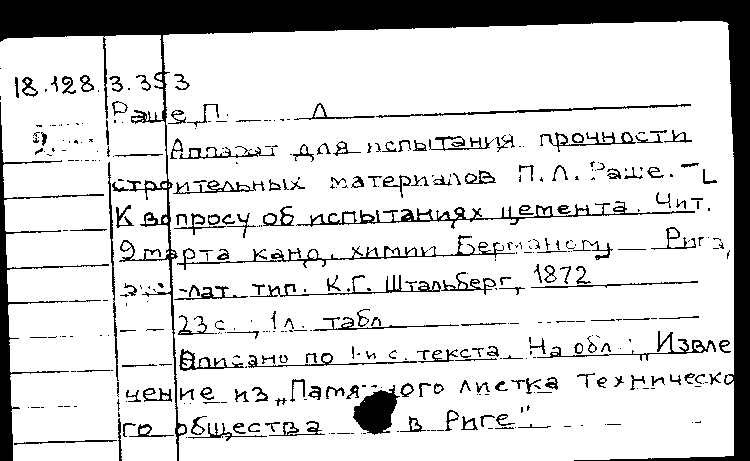 18.128.3.353
Раше, П. Л
2.
Аппарат для испытания прочности
строительных материалов П.Л. Раше. –
К вопросу об испытаниях цемента. Чит.
9 марта канд. химии Берманом, Рига,
-лат. тип. К.Г. Штальберг, 1872
23 с., 1 л. табл.
Описано по 1-й с. текста. На обл.: „Извле
чение из „Памятного листка техническо
го общества в Риге".